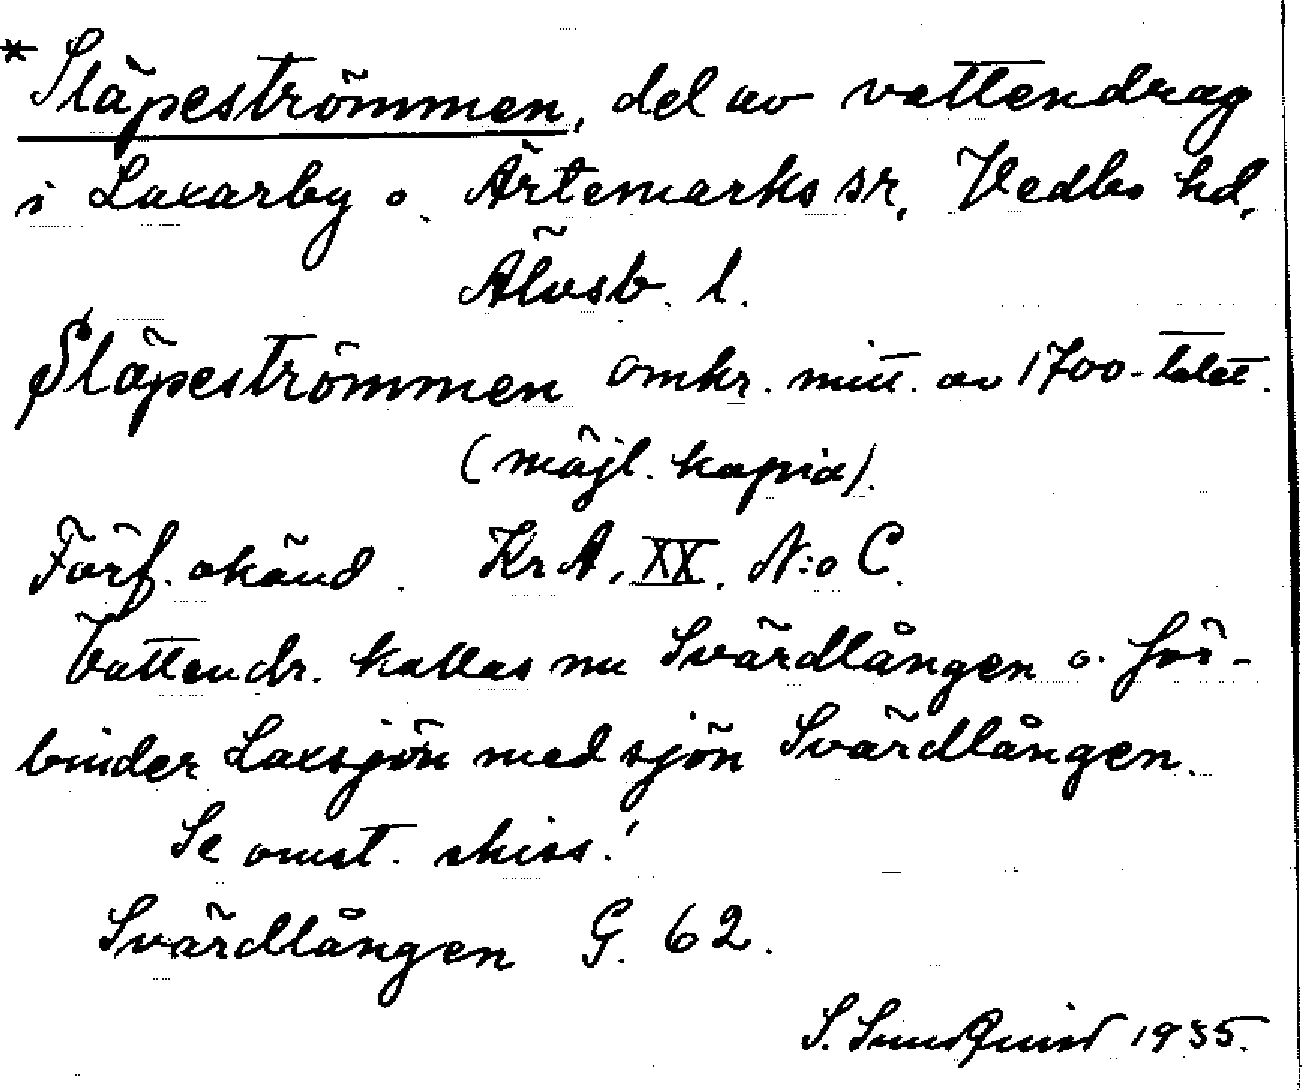 * Släpeströmmen, del av vattendrag
i Laxarby o. Ärtemarks sr, Vedbo hd,
Älvsb. l.
Släpeströmmen omkr. mitt. av 1700-talet.
(möjl. kopia).
Förf. okänd. KrA, XX, N:o C.
Vattendr. kallas nu Svärdlången o. för-
binder Laxsjön med sjön Svärdlången.
Se omst. skiss!
Svärdlången G. 62.
S. Sundquist 1935.